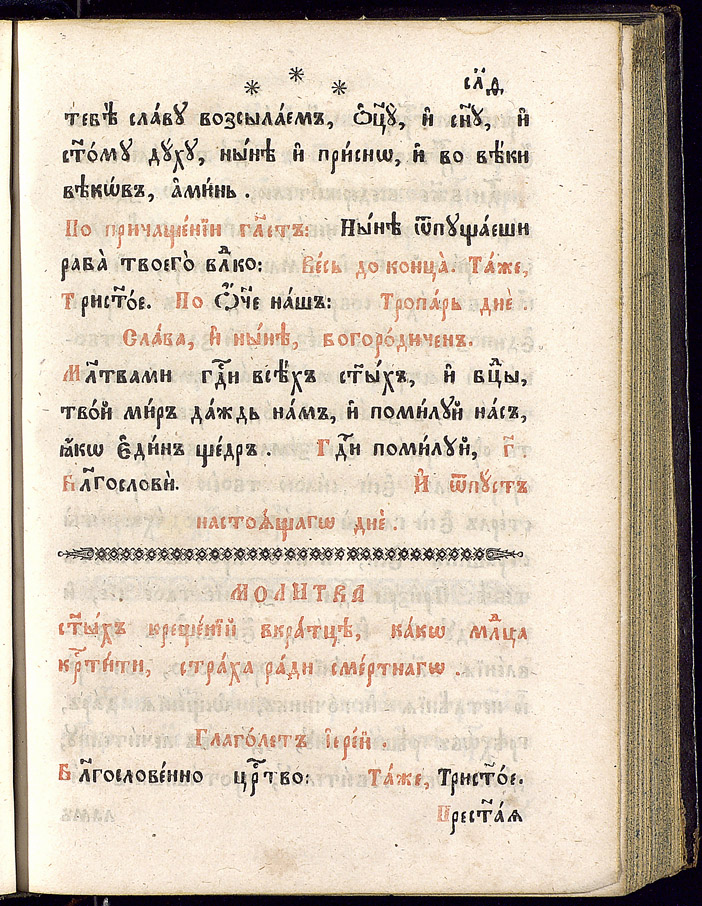 сл҃д
тебѣ̀ сла́ву возсыла́емъ, ѻ҆ц҃у̀, и҆ сн҃у, и҆
ст҃о́му дꙋ́ху, ны́нѣ и҆ при́снѡ, и҆ во вѣ́ки
вѣкѡ́въ, а҆ми́нь .
По причаще́нїи гл҃етъ: Ны́нѣ ѿпуща́еши
раба̀ твоего̀ влⷣко: Ве́сь до конца̀. Та́же,
Трист҃о́е. По Ѻ҆́ч҃е на́шъ: Тропа́рь днѐ .
Сла́ва, и҆ ны́нѣ, богоро́диченъ.
Мл҃твами гдⷭ҇и всѣ́хъ ст҃ы́хъ, и҆ бцⷣы,
тво́й ми́ръ да́ждь на́мъ, и҆ поми́луй на́съ,
ꙗ҆́кѡ є҆ди́нъ ще́дръ . Гдⷭ҇и поми́луй, г҃
Бл҃гословѝ. И҆ ѿпу́стъ
настоѧ́щагѡ днѐ
МОЛИТВА
ст҃ы́хъ креще́нїй вкра́тцѣ, ка́кѡ млⷣнца
крⷭ҇ти́ти, стра́ха ра́ди сме́ртнагѡ .
Глаго́летъ і҆ере́й .
Бл҃гослове́нно црⷭ҇тво: Та́же, Трист҃о́е.
Прест҃а́ѧ